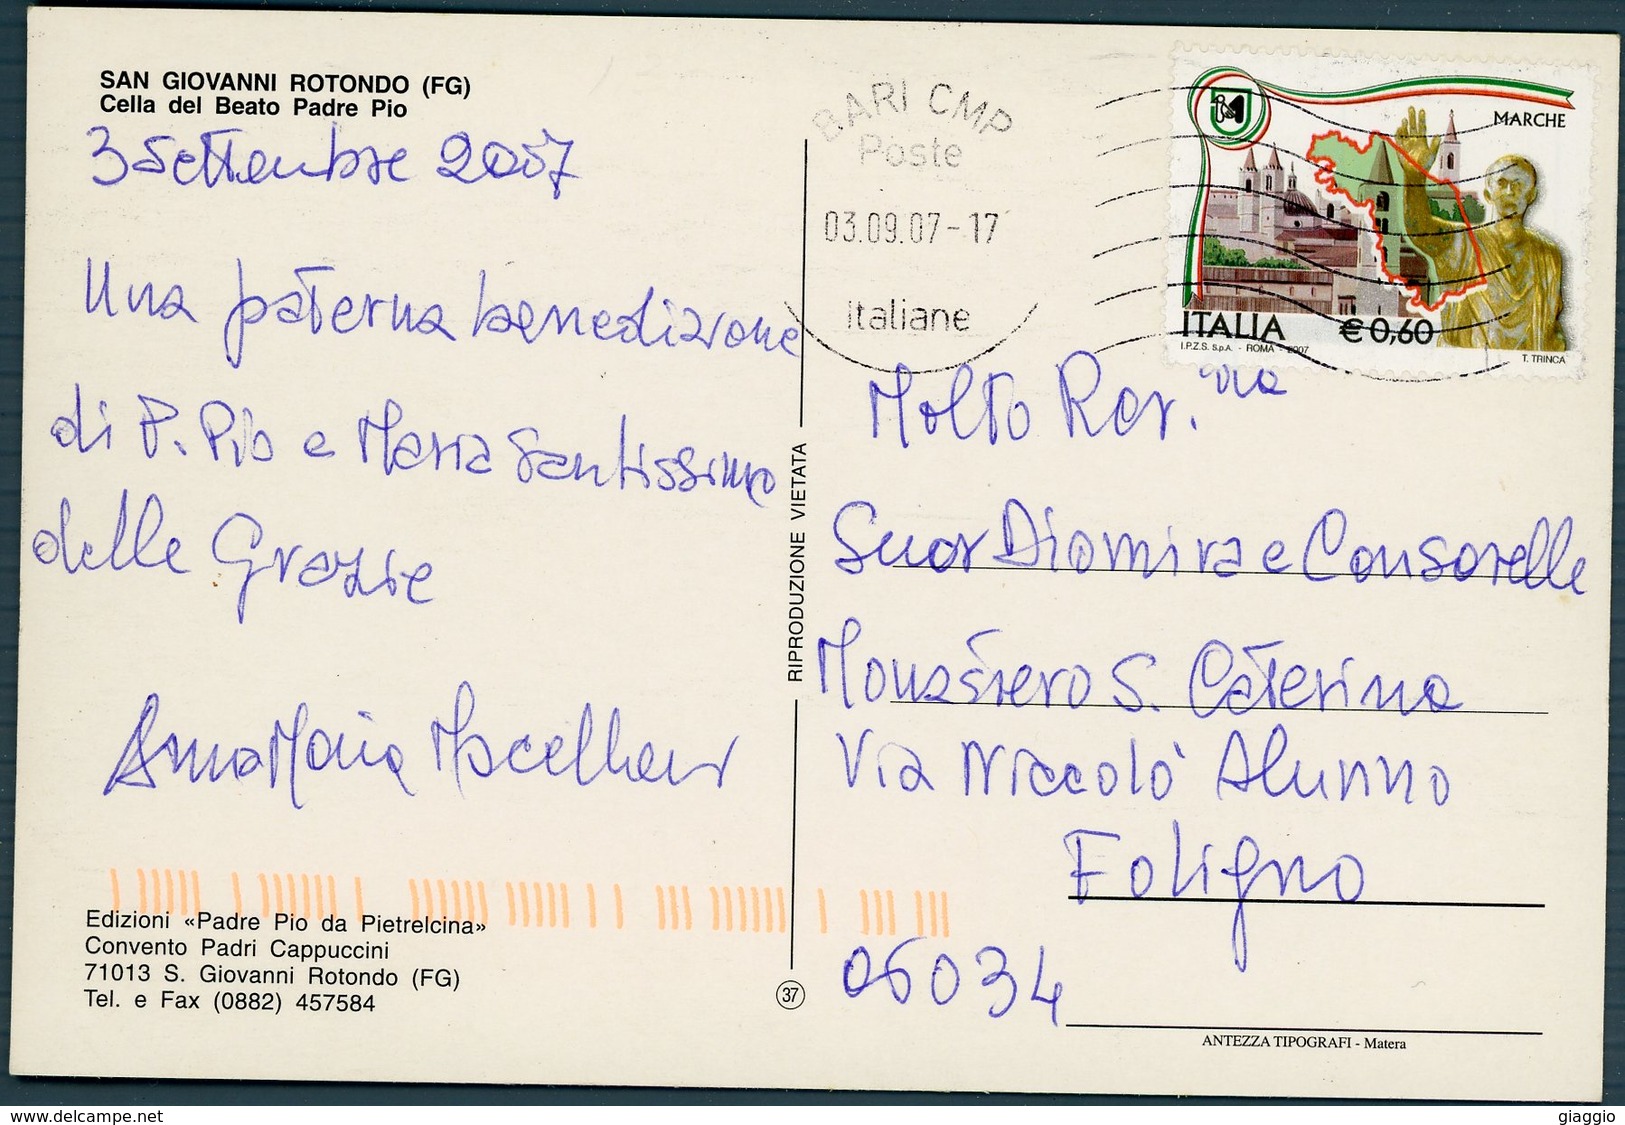 SAN GIOVANNI ROTONDO (FG)
Cella del Beato Padre Pio
3 settembre 2007
Una paterna benedizione
di P. Pio e Maria Santissima
delle Grazie
AnnaMaria
Edizioni «Padre Pio da Pietrelcina»
Convento Padri Cappuccini
71013 S. Giovanni Rotondo (FG)
Tel. e Fax (0882) 457584
RIPRODUZIONE VIETATA
37
BARI CMP
Poste
03.09.07-17
italiane
MARCHE
ITALIA €0,60
I.P.Z.S. S.p.A. - ROMA - 2007
T. TRINCA
Molto Rev.
Suor Diomira e Consorelle
Monastero S. Caterina
Via Niccolò Alunno
Foligno
06034
ANTEZZA TIPOGRAFI - Matera
www.delcampe.net
giaggio